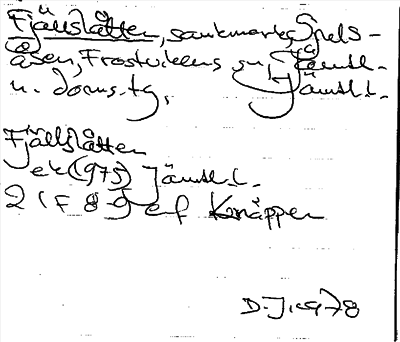 Fjällslåtten, sankmark, Snels-
åsen, Frostvikens sn, Jämtl.
n. doms.tg, Jämtl.l.
Fjällslåtten
ek (1975) Jämtl.l.
21F 8-9 e-f Knäppen
D.J. 1978